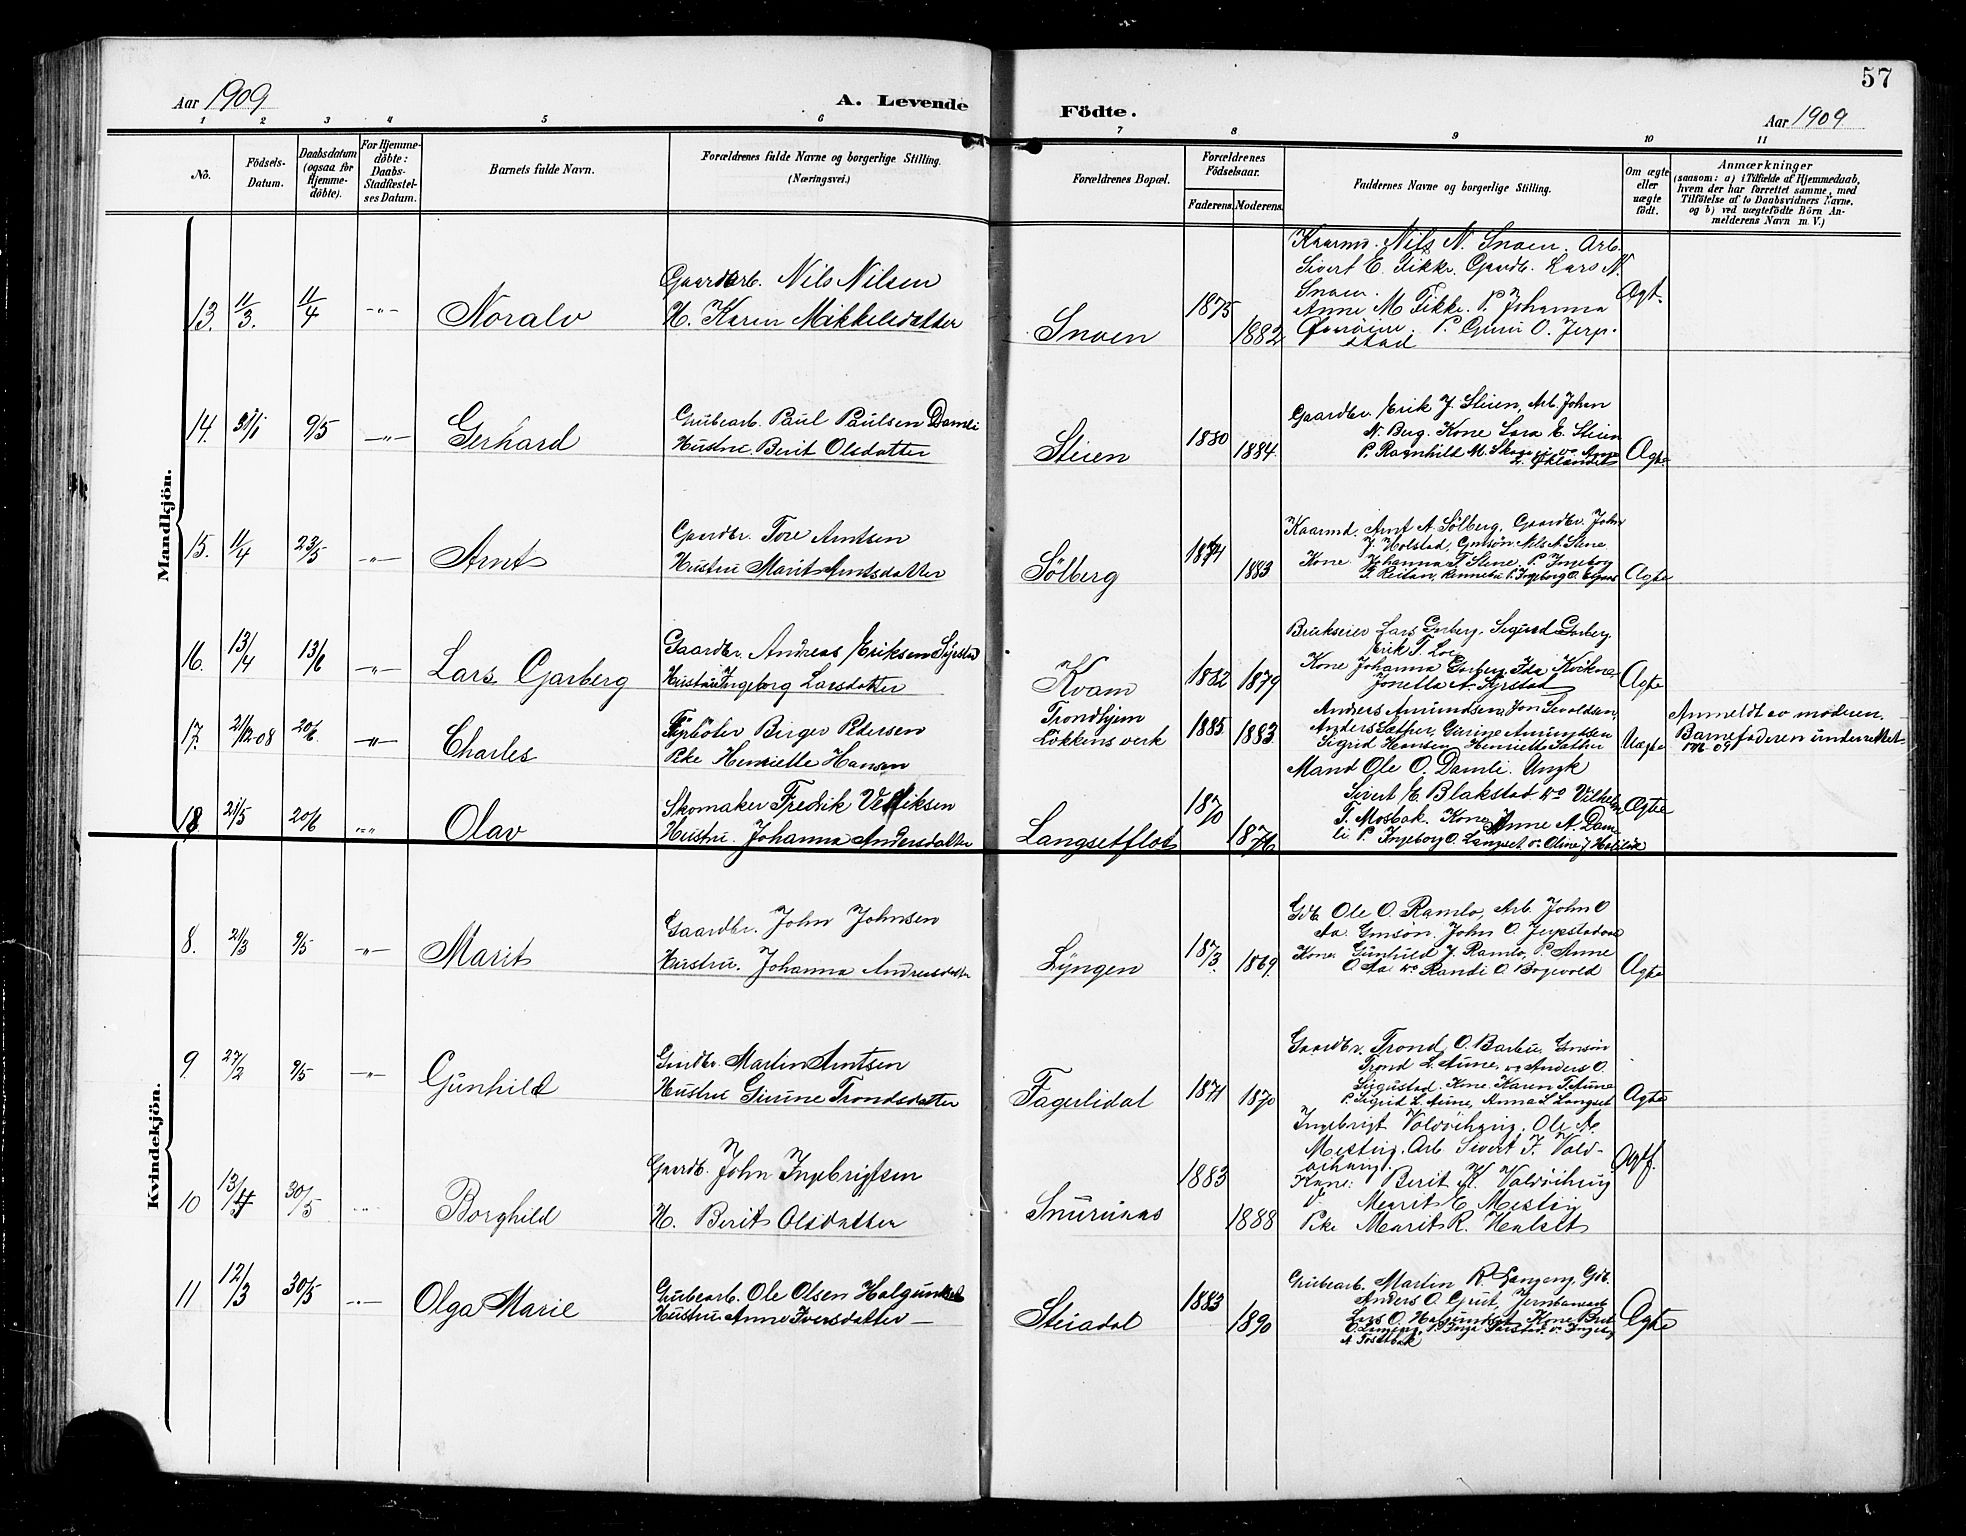 57
Aar 1909
A. Levende
Födte.
Aar 1909
1 2 3 4 5 6 7 8 9 10 11
No.
Födsels-
Datum.
Daabsdatum
(ogsaa for
Hjemme-
döbte).
For Hjemme-
döbte:
Daabs-
Stadfæstel-
ses Datum.
Barnets fulde Navn.
Forældrenes fulde Navne og borgerlige Stilling.
(Næringsvei.)
Forældrenes Bopæl.
Forældrenes
Födselsaar.
Faderens. Moderens.
Faddernes Navne og borgerlige Stilling.
Om ægte
eller
uægte
født.
Anmærkninger
(saasom: a) i Tilfælde af Hjemmedaab,
hvem der har forrettet samme, med
Tilföielse af to Daabsvidners Navne,
og b) ved uægtefödte Börn An-
melderens Navn m. V.)
Mandkjön.
13. 11/3. 11/4 -"- Noralv
Gaardbr. Nils Nilsen
H. Karen Mikkelsdatter
Snoen 1875 1882
Kaarmd. Nils N. Snoen. Arb.
Sivert E. Fikke. Gaardb. Lars N.
Snoen.
Anne M Fikke. P. Johanna
P. Guri O. Jerp-
stad
Ægt.
14. 9/5 -"- Gerhard
Grubearb. Paul Paulsen Damli
Hustru Berit Olsdatter
Steien 1880 1884
Gaardbr. Erik J. Steien, Arb. John
N. Berg. Kone Sara E. Steien
P. Ragnhild M.
Ægte
15. 11/4 23/5 -"- Arnt
Gaardbr. Tore Arntsen
Hustru Marit Arntsdatter
Sölberg 1874 1883
Kaarmd. Arnt A. Sölberg, Gaardbr. John
J. Holstad, Gmsön Nils A. Stene
Kone Johanna T. Stene, P. Ingeborg
J. Reitan, Rennebu P. Ingeborg O.
Ægte
16. 13/4 13/6 -"- Lars Garberg
Gaardbr. Andreas Eriksen Syrstad
Hustru Ingeborg Larsdatter
Kvam 1882 1879
Brukseier Lars Garberg, Sigurd Garberg
Erik T. Loe
Kone Johanna Garberg Ida Kvikne
Jonetta N. Syrstad
Ægte
17. 21/12-08 20/6. -"- Charles
Birger Pedersen
Pike Henriette Hansen
Trondhjem
Lökkens verk 1885 1883
Anders Amundsen, Jon Sevaldsen,
Anders Sæther, Gurine Amundsen
Sigrid Hansen Henriette Sæther
Uægte
Anmeldt av moderen.
Barnefaderen underrettet
18 21/5 20/6 -"- Olav
Skomaker Fredrik
Hustru. Johanna Andersdatter
Langsetflot 1870 1876
Mand Ole O. Damli. Ungk
Sivert E. Blakstad og Vilhelm
T. Mosbak. Kone Anne A. Dam-
li P. Ingeborg O. Langset og Oline J
Ægte
Kvindekjön.
8. 21/3 9/5 -"- Marit
Gaardbr. John Johnsen
Hustru. Johanna Andersdatter
Lyngen 1873. 1869.
Gdb. Ole O. Ramlo, Arb. John O
Aa. Gmson John O. Jerpstad
Kone Gunhild J. Ramlo, P. Anne
O. Aa og Randi O. Bogevold
Ægte
9. 27/2 9/5 -"- Gunhild
Gaardbr. Martin Arntsen
Hustru Gurine Trondsdatter
Fagerlidal 1871 1870
Gaardbr. Trond O. Barbu, Gmsön
Trond L. Aune, og Anders O.
Kone Karen T. Aune
P. Sigrid L. Aune, Anna L Langset
Ægte
10 13/4 30/5 -"- Borghild
Gaardb. John Ingebrigtsen
H. Berit Olsdatter
1883 1888
Ingebrigt Voldöihaug, Ole N.
Mestrig, Arb Sivert I. Vold-
öihaug.
Kone: Berit K. Voldöihaug
Marit E. Mestrig
Pike Marit R. Halset
Ægtf.
11 12/3 30/5 -"- Olga Marie
Grubearb. Ole Olsen
Hustru Anne Iversdatter
Steiadal 1883 1890
Grubearb. Martin R. Langeng, Gdb.
Anders O. Grut,
Lars O. Kone
Ægte